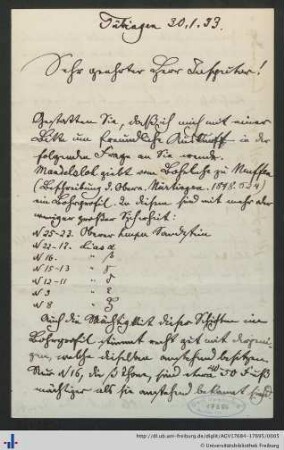 Tübingen 20.1.99.
Sehr geehrter Herr Inspector!
Gestatten Sie, daß ich mich mit einer
Bitte um freundliche Auskunft in der
folgenden Frage an Sie wende.
Mandelsloh giebt vom Bohrloch zu Neuffen
(Beschreibung d. Oberа. Nürtingen. 1848. S. 4)
ein Bohrprofil. In diesem sind mit mehr oder
weniger großer Sicherheit:
N 25-23. Oberer Sandstein
N 22-18. Lias α
N 16. " β
N 15-13 " γ
N 12-11 " δ
N 9 " ε
N 8 " ζ
Auch die Mächtigkeit dieser Schichten im
Bohrprofil stimmt recht gut mit derjeni-
gen, welche dieselben anstehend besitzen.
Nur N 16, die β Thone, sind etwa 50 Fuß
mächtiger als sie anstehend bekannt sind.
http://dl.ub.uni-freiburg.de/diglit/
© Universitätsbibliothek Freiburg